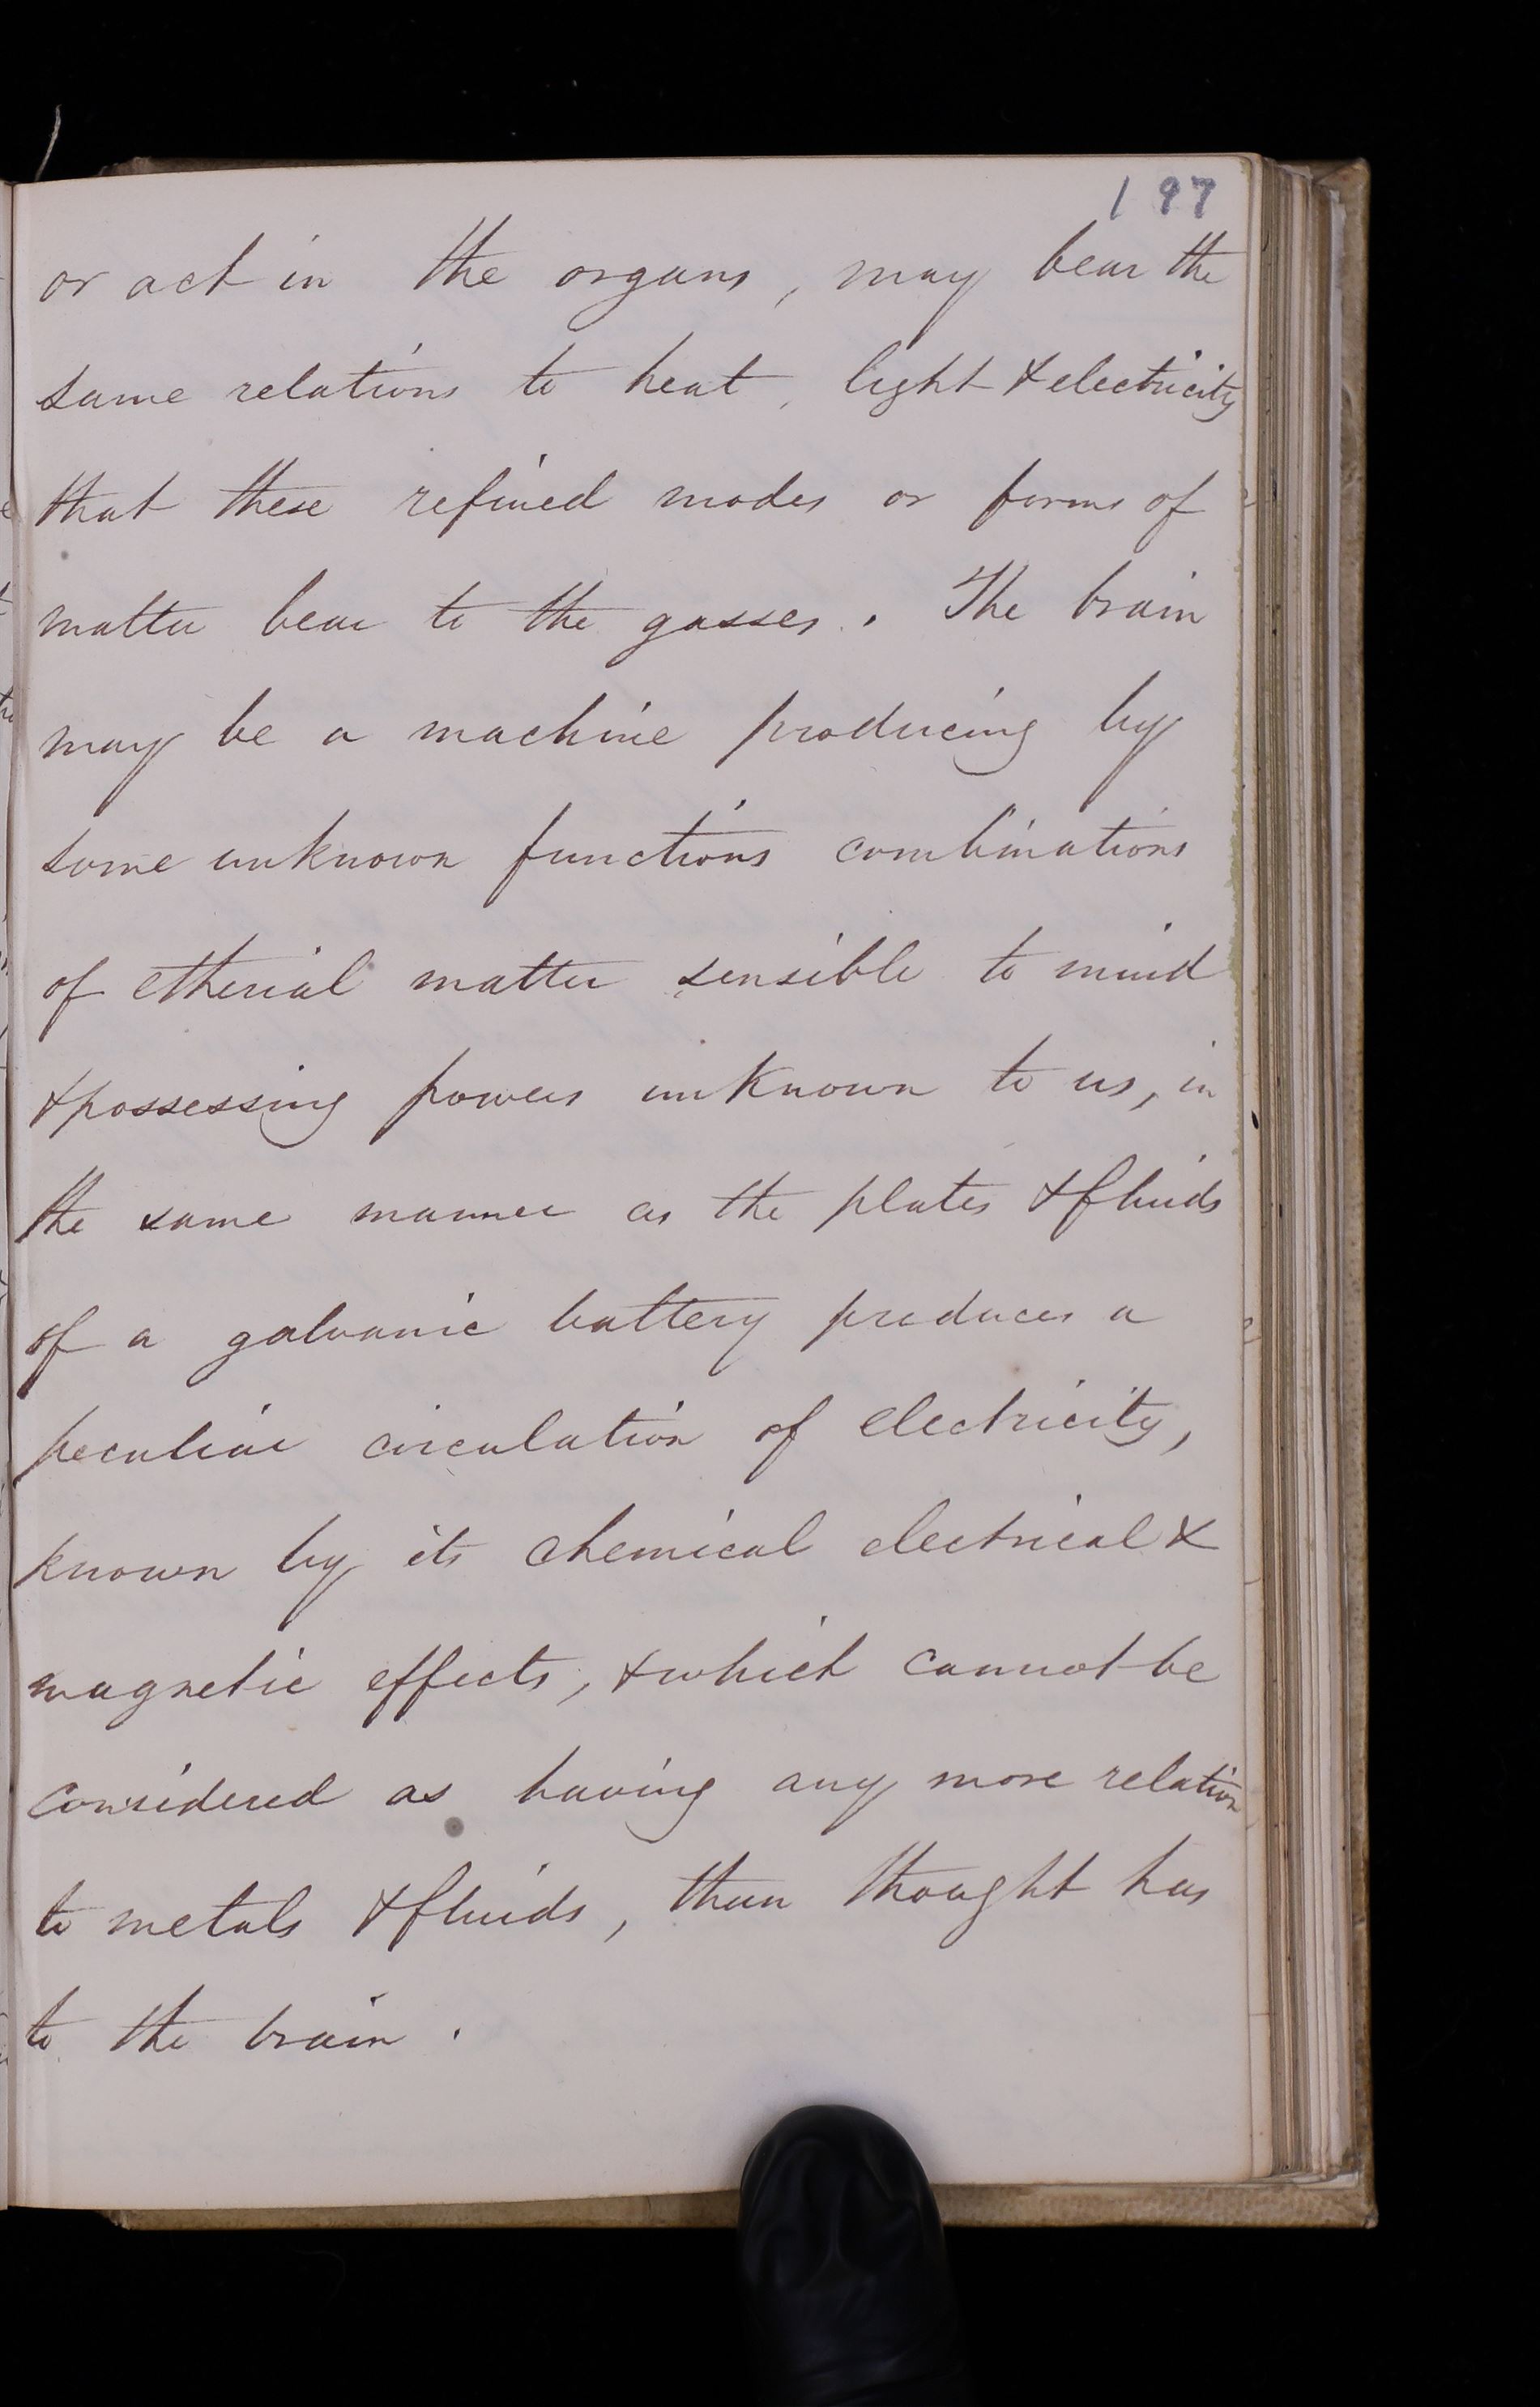 197
or act in the organs, may bear the
same relations to heat, light & electricity
that these refined modes or forms of
matter bear to the gasses. The brain
may be a machine producing by
some unknown functions combinations
of etherial matter sensible to mind
& possessing powers unknown to us, in
the same manner as the plates & fluids
of a galvanic battery produces a
peculiar circulation of electricity,
known by its chemical electrical &
magnetic effects, & which cannot be
considered as having any more relation
to metals & fluids, than thought has
to the brain.